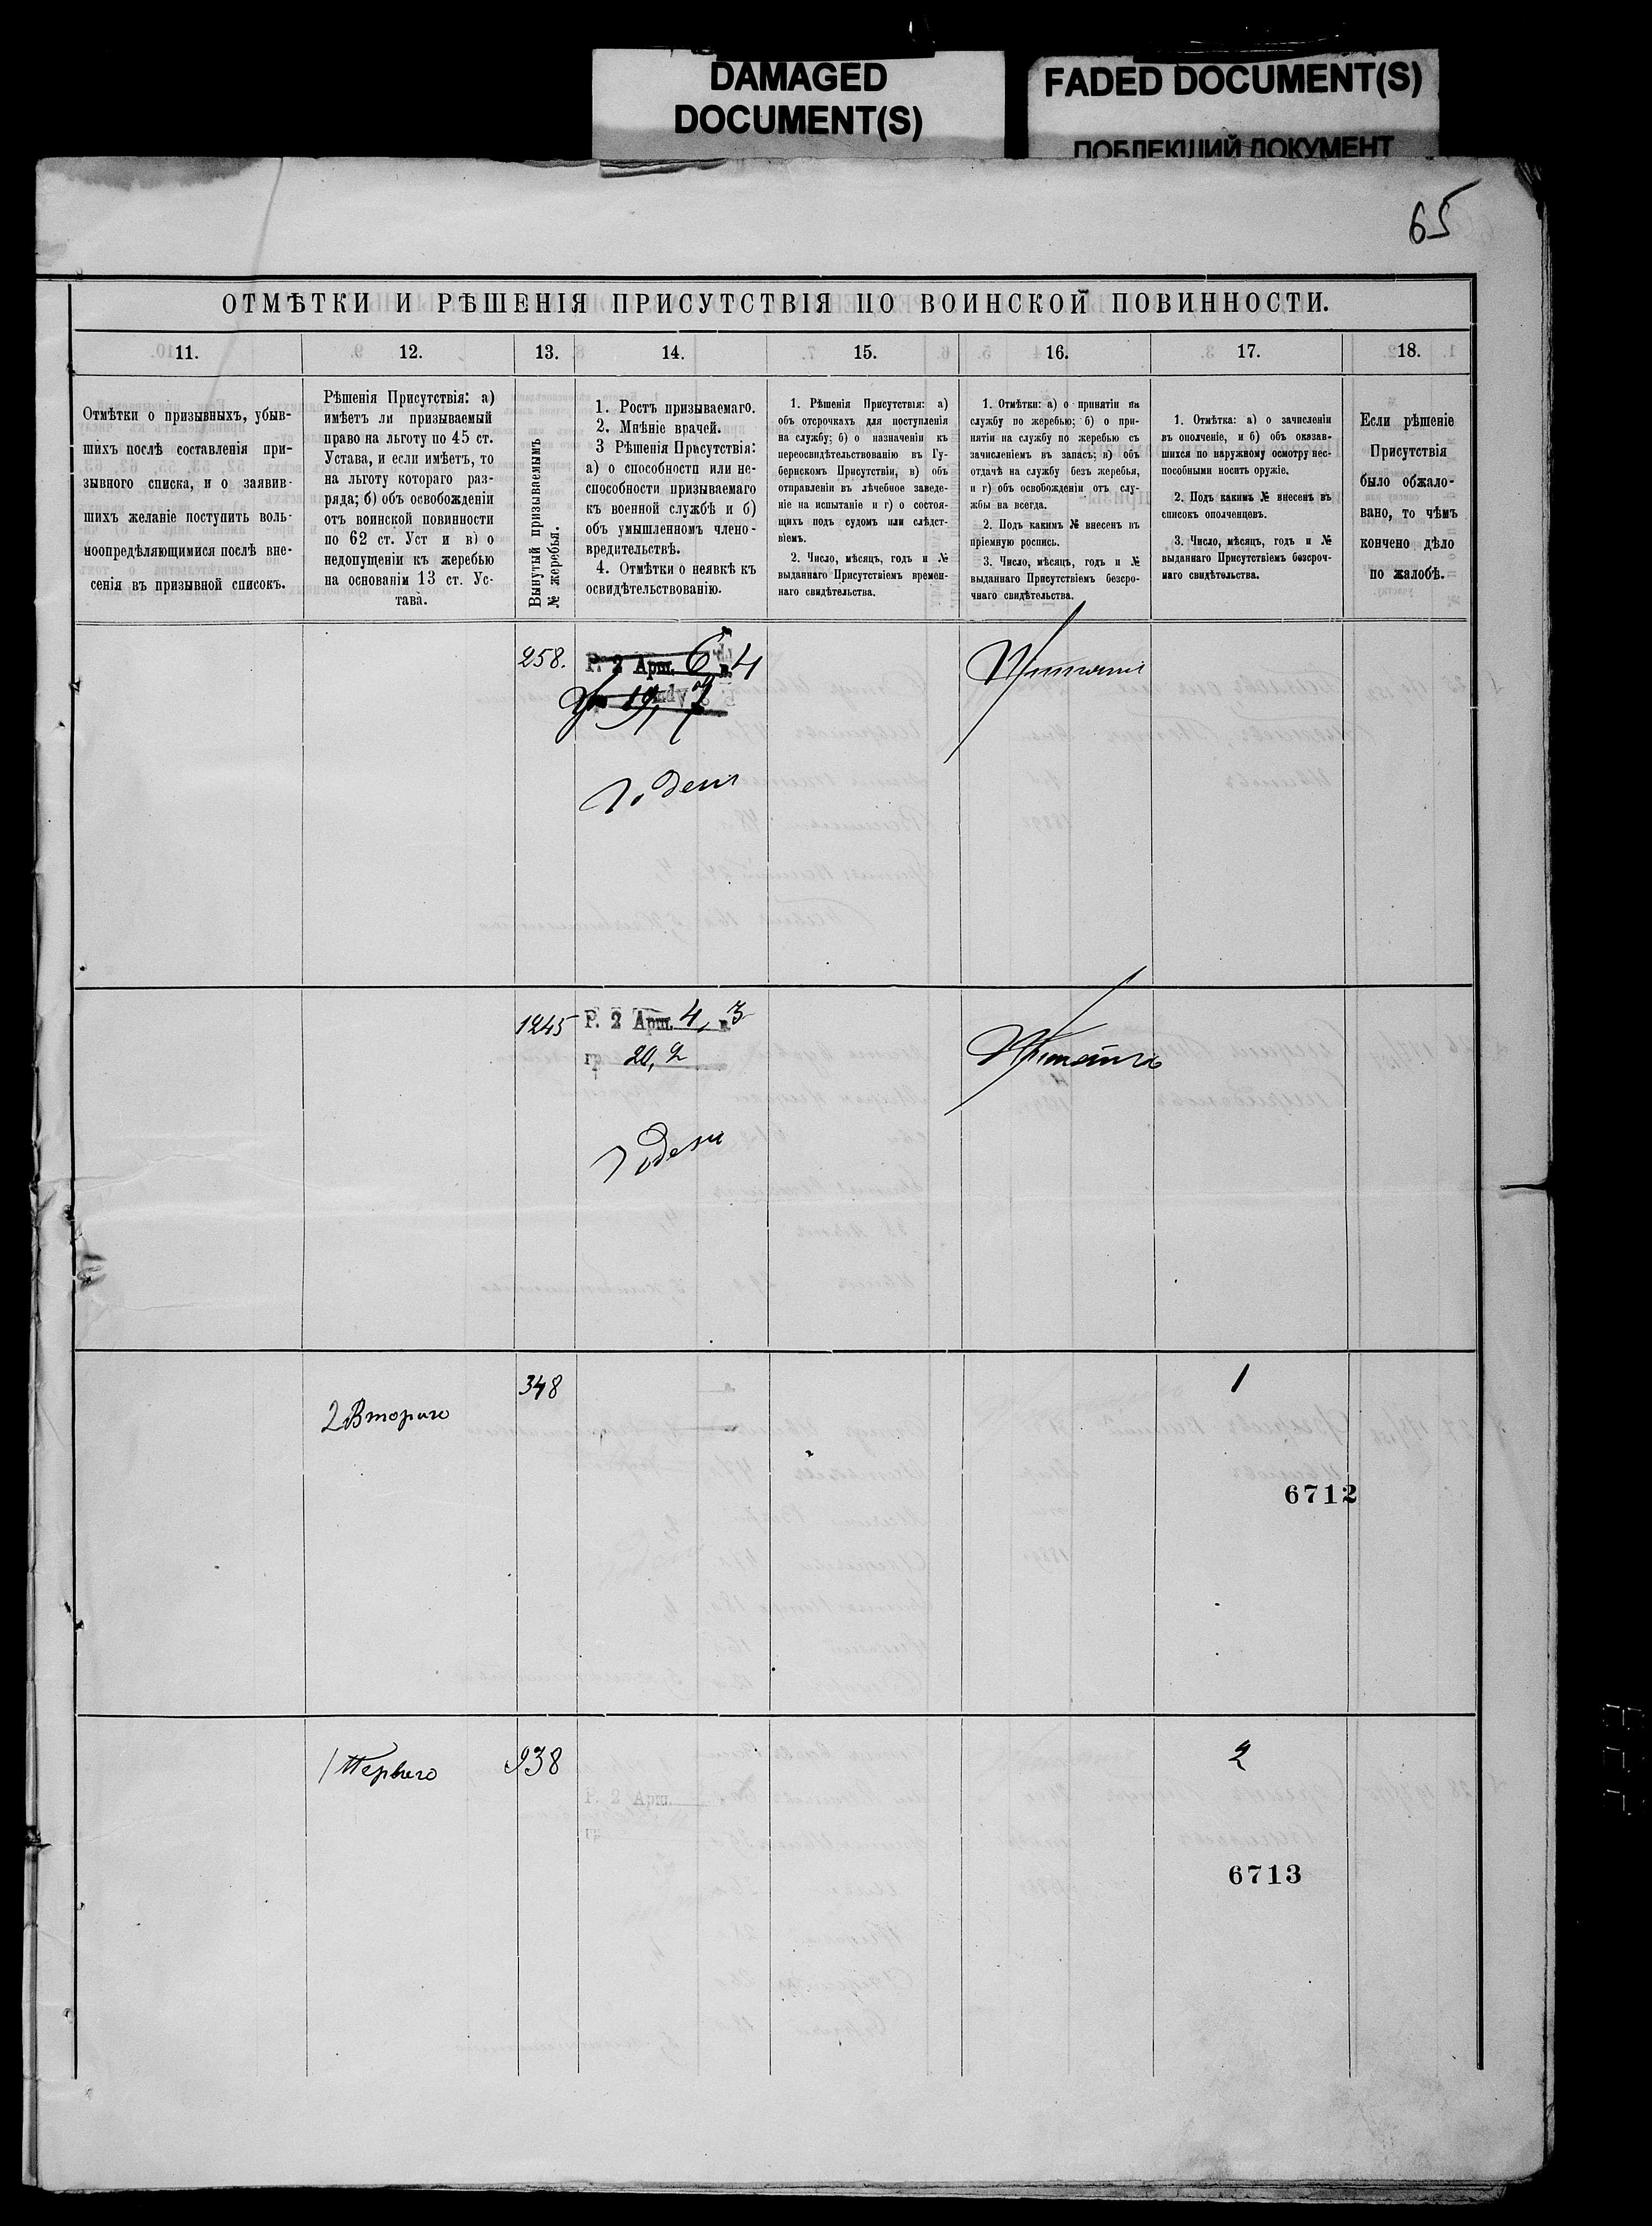 DAMAGED
DOCUMENT(S)
FADED DOCUMENT(S)
ПОБЛЕКШИЙ ДОКУМЕНТ
65
ОТМѢТКИ И РѢШЕНІЯ ПРИСУТСТВІЯ ПО ВОИНСКОЙ ПОВИННОСТИ.
11.
12.
13.
14.
15.
16.
17.
18.
Отмѣтки о призывныхъ, убыв-
шихъ послѣ составленія при-
зывного списка, и о заявив-
шихъ желаніе поступить воль-
ноопредѣляющимися послѣ вне-
сенія въ призывной списокъ.
Рѣшенія Присутствія: а)
имѣетъ ли призываемый
право на льготу по 45 ст.
Устава, и если имѣетъ, то
на льготу котораго раз-
ряда; б) объ освобожденіи
отъ воинской повинности
по 62 ст. Уст и в) о
недопущеніи къ жеребью
на основаніи 13 ст. Ус-
тава.
Вынутый призываемымъ
№ жеребья.
1. Ростъ призываемаго.
2. Мнѣніе врачей.
3 Рѣшенія Присутствія:
а) о способности или не-
способности призываемаго
къ военной службѣ и б)
объ умышленномъ члено-
вредительствѣ.
4. Отмѣтки о неявкѣ къ
освидѣтельствованію.
1. Рѣшенія Присутствія: а)
объ отсрочкахъ для поступленія
на службу; б) о назначеніи къ
переосвидѣтельствованію въ Гу-
бернскомъ Присутствіи, в) объ
отправленіи въ лѣчебное заведе-
ніе на испытаніе и г) о состоя-
щихъ подъ судомъ или слѣдст-
віемъ.
2. Число, мѣсяцъ, годъ и №
выданнаго Присутствіемъ времен-
наго свидѣтельства.
1. Отмѣтки: а) о принятіи на
службу по жеребью; б) о при-
нятіи на службу по жеребью съ
зачисленіемъ въ запасъ; в) объ
отдачѣ на службу безъ жеребья,
и г) объ освобожденіи отъ слу-
жбы на всегда.
2. Подъ какимъ № внесенъ въ
пріемную роспись.
3. Число, мѣсяцъ, годъ и №
выданнаго Присутствіемъ безсро-
чнаго свидѣтельства.
1. Отмѣтка: а) о зачисленіи
въ ополченіе, и б) объ оказав-
шихся по наружному осмотру нес-
пособными носить оружіе.
2. Подъ какимъ № внесенъ въ
списокъ ополченцевъ.
3. Число, мѣсяцъ, годъ и №
выданнаго Присутствіемъ безсроч-
наго свидѣтельства.
Если рѣшеніе
Присутствія
было обжало-
вано, то чѣмъ
кончено дѣло
по жалобѣ.
258.
Р. 2 Арш. 6 в. 4
Годенъ
1245
Р. 2 Арш. 4, в. 3
гр. 20, 2
Годенъ
348
2 Второго
1
6712
1 Перваго
938
Р. 2 Арш.
гр.
2
6713